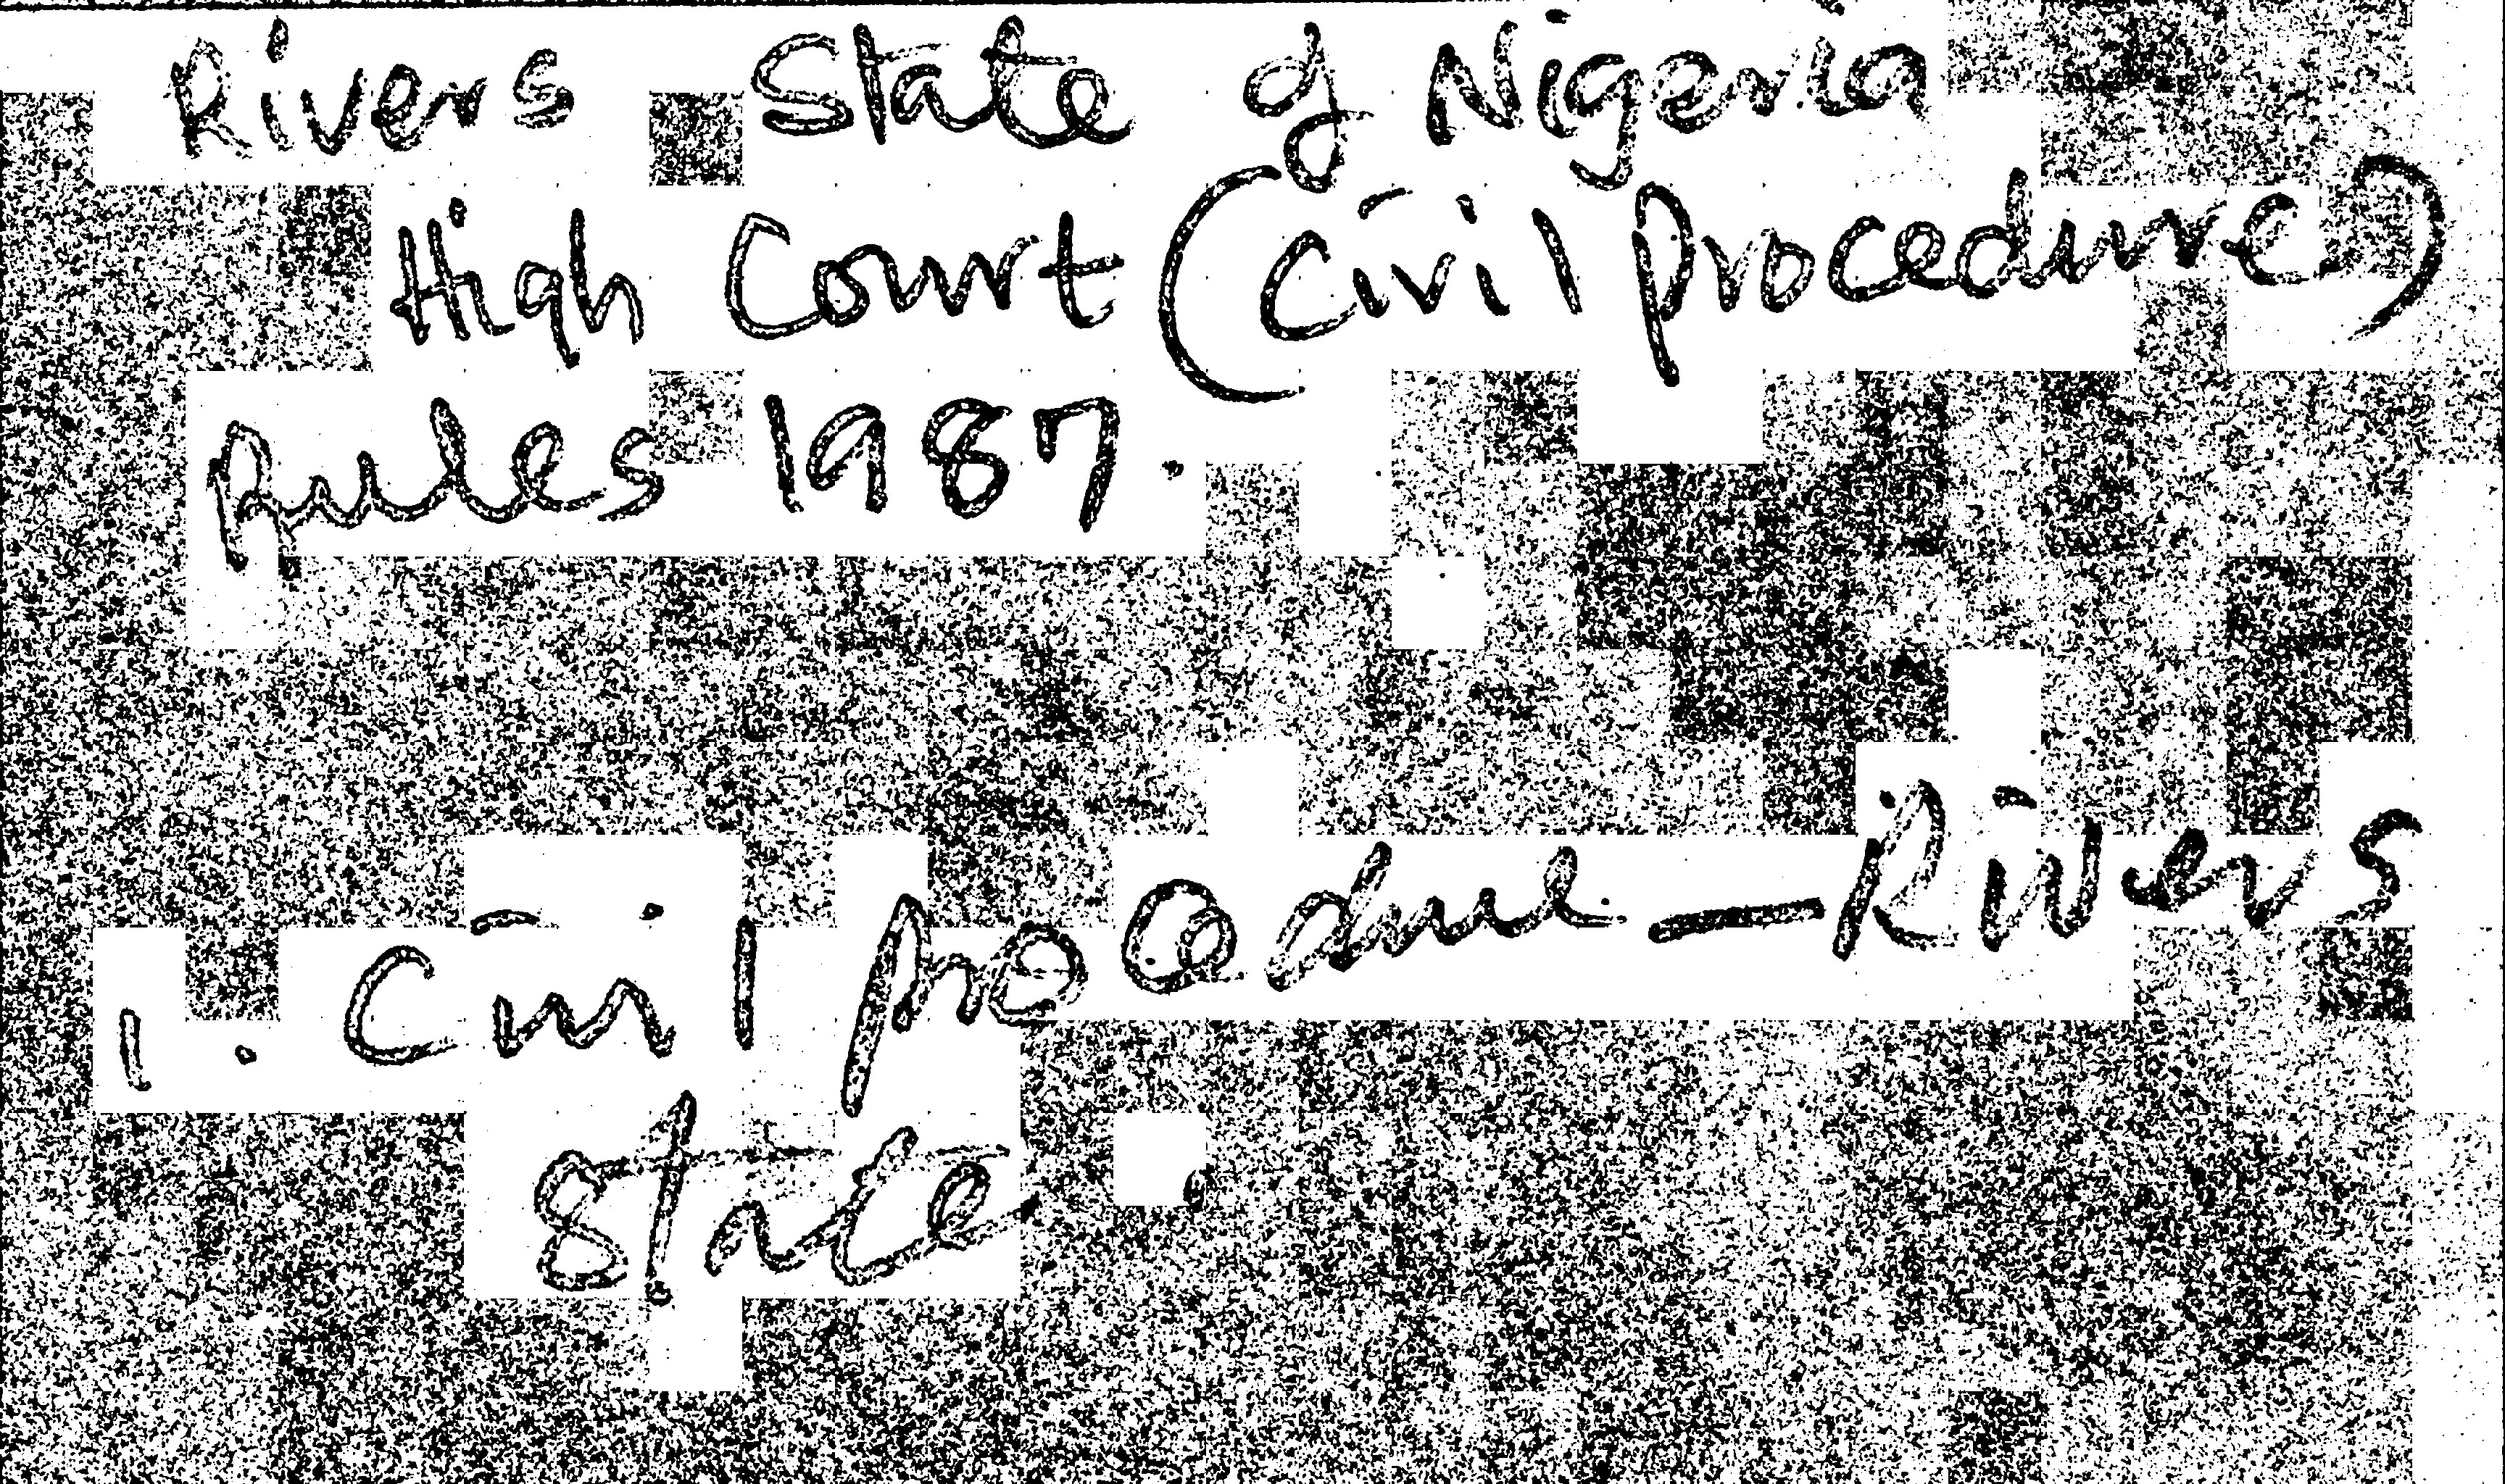 Rivers State of Nigeria
High Court (Civil procedure)
Rules 1987.
1. Civil procedure — Rivers
State.